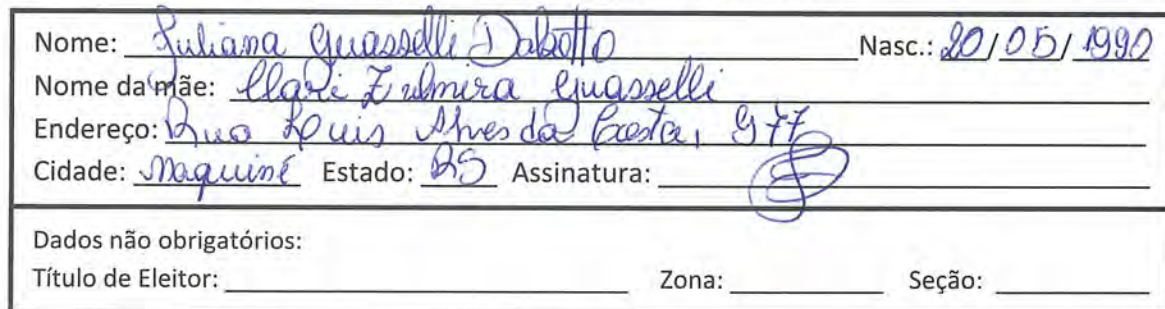 Nome: Juliana Guasselli Dalbotto Nasc.: 20/05/1990
Nome da mãe: Clari Zulmira Guasselli
Endereço: Rua Luis Alves da Costa, 977
Cidade: Maquiné Estado: RS Assinatura:
Dados não obrigatórios:
Título de Eleitor: Zona: Seção: